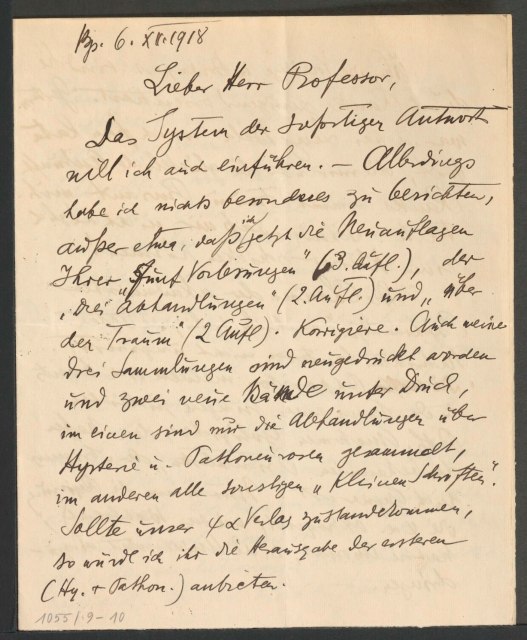 Bp. 6. XII. 1918
Lieber Herr Professor,
Das System der sofortigen Antwort
will ich auch einführen. – Allerdings
habe ich nichts besonderes zu berichten,
außer etwa, daß ich jetzt die Neuauflagen
Ihrer „Fünf Vorlesungen" (3. Aufl.), der
„Drei Abhandlungen" (2. Aufl.) und „über
den Traum" (2 Aufl). korrigiere. Auch meine
drei Sammlungen sind neugedruckt worden
und zwei neue Bände unter Druck,
im einen sind nur die Abhandlungen über
Hysterie u. Pathoneurosen gesammelt,
im anderen alle sonstigen „Kleinen Schriften".
Sollte unser ψα Verlag zustandekommen,
so würd ich ihr die Herausgabe der ersteren
(Hy. + Pathon.) anbieten.
1055/9-10